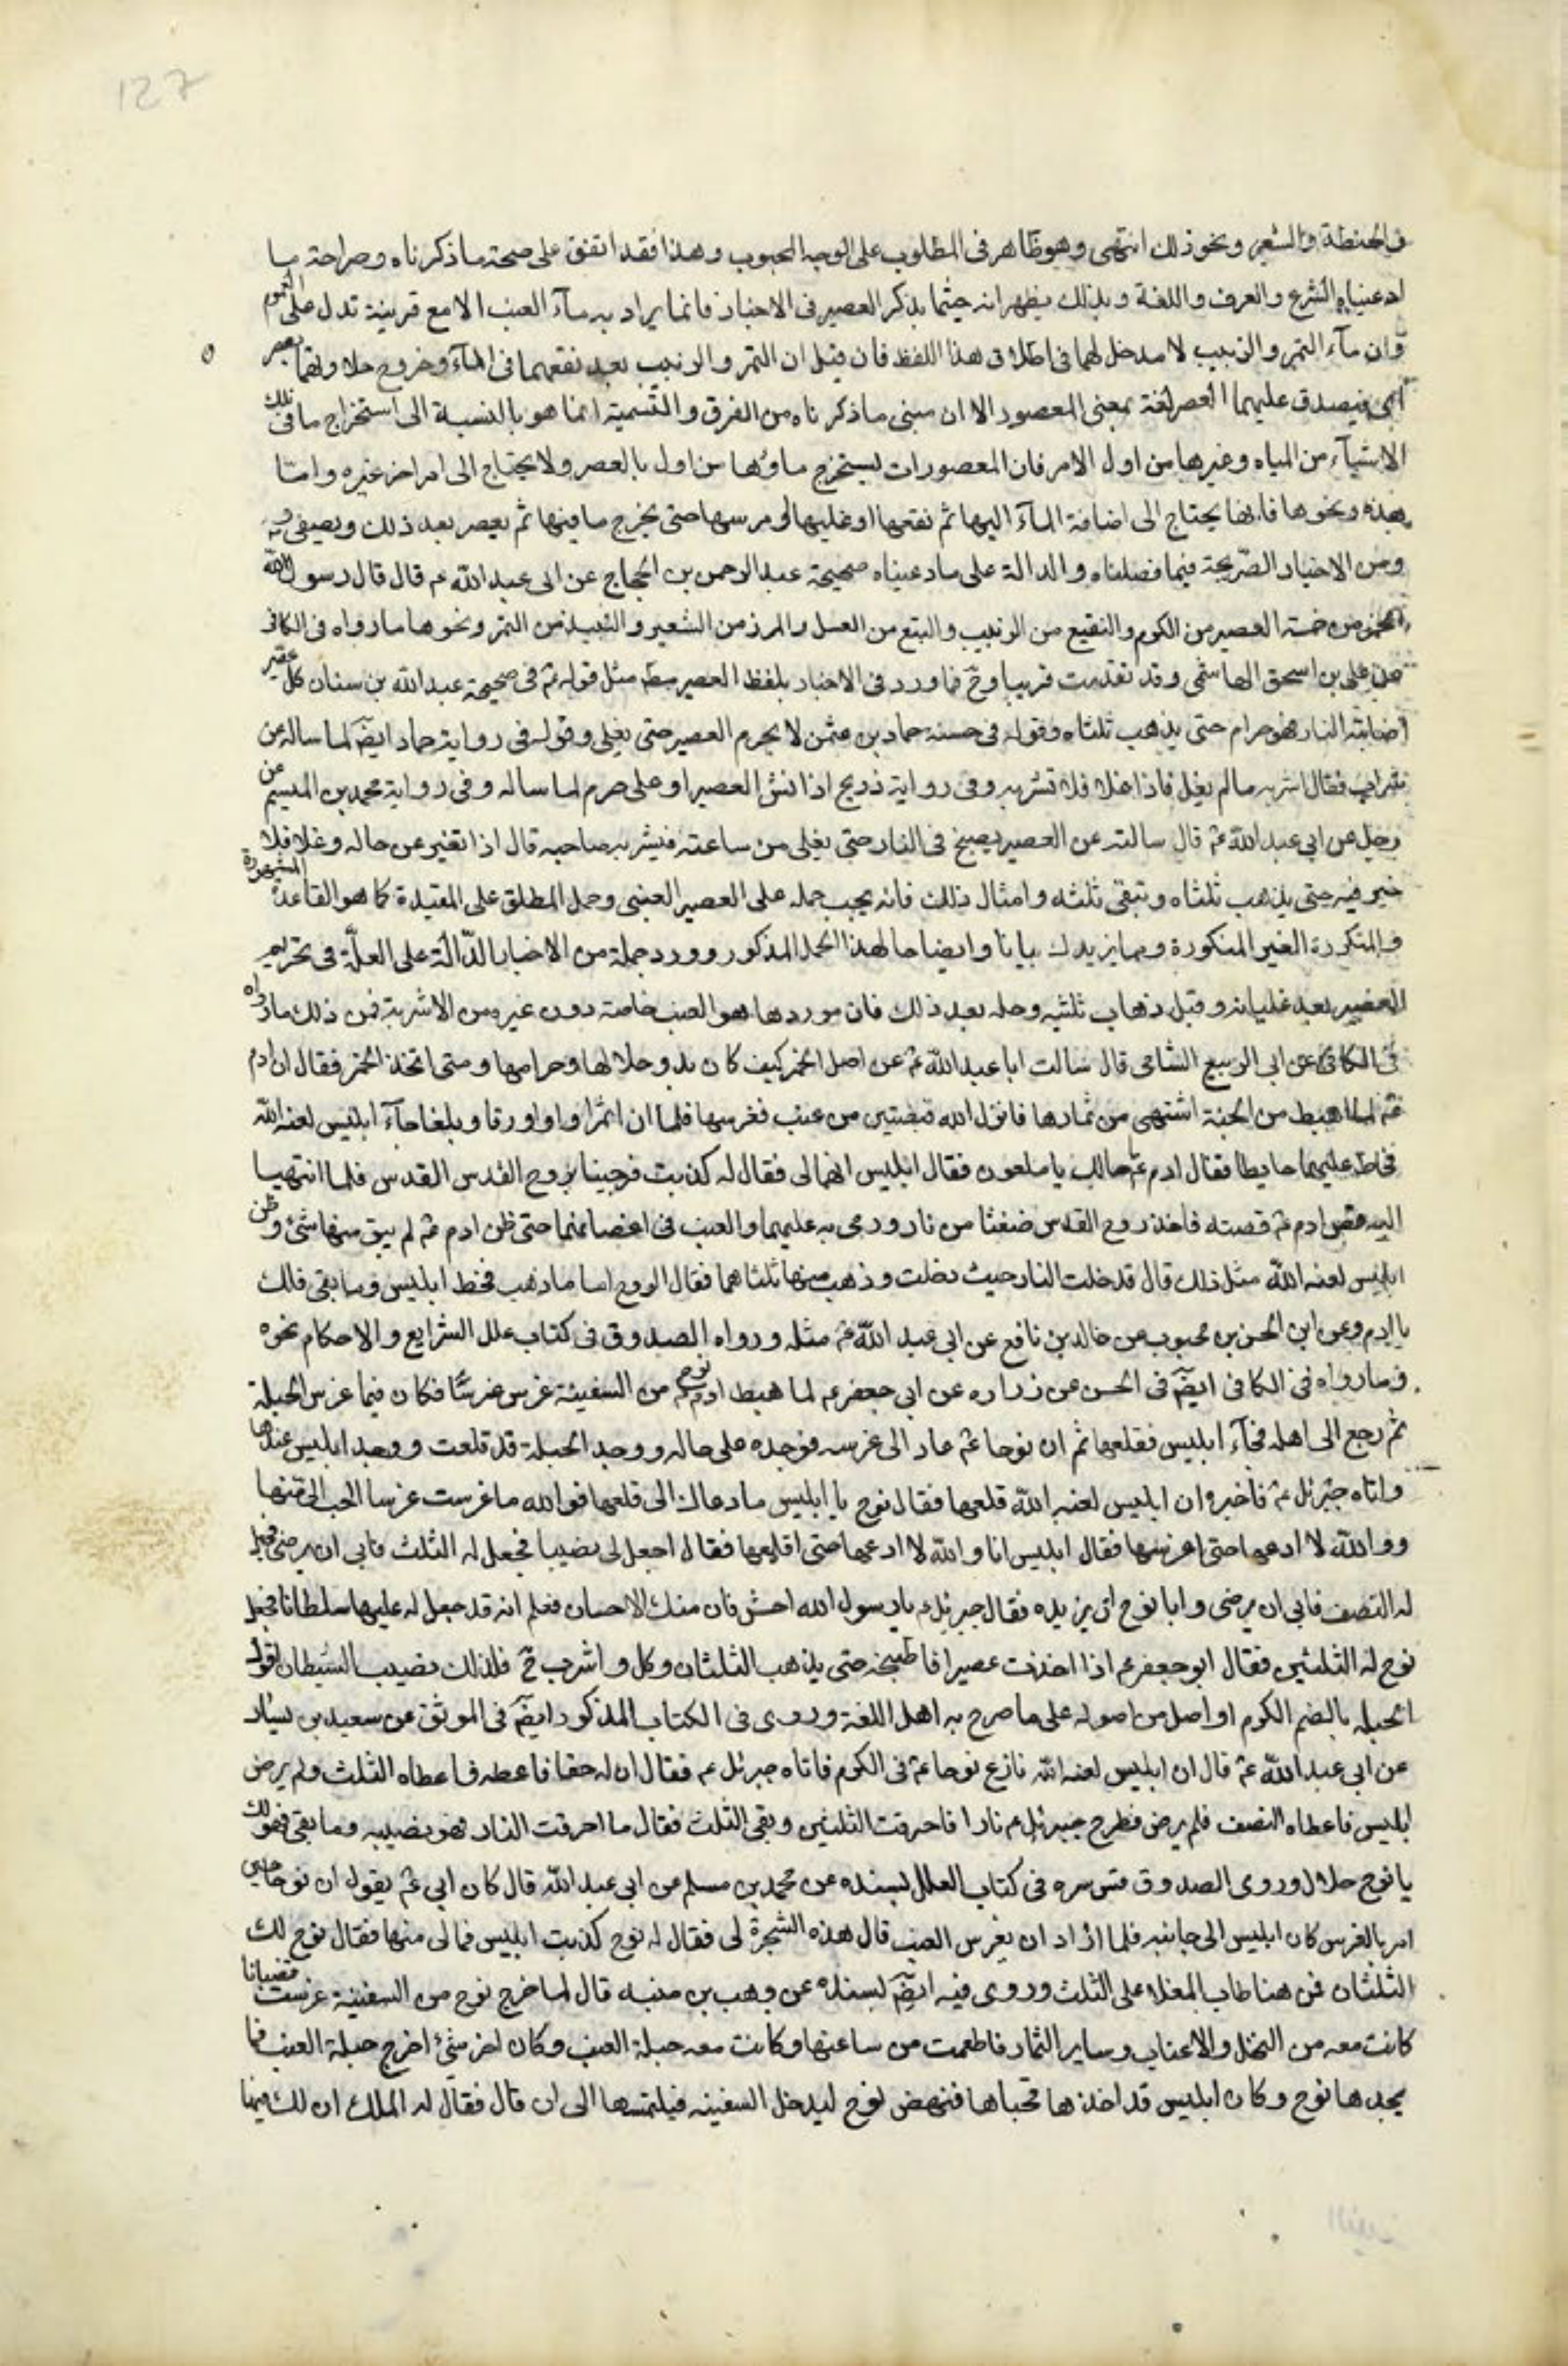 127
فى الحنطة والشعير ونحو ذلك انتهى وهو ظاهر فى المطلوب على الوجه المحبوب وهذا فقد اتفق على صحة ما ذكرناه وصراحة ما
ادعيناه الشرع والعرف واللغة وبذلك يظهر انه حيثما يذكر العصير فى الاخبار فانما يراد به مآء العنب الا مع قرينة تدل على العموم
وان مآء التمر والزبيب لا مدخل لهما فى اطلاق هذا اللفظ فان قيل ان التمر والزبيب بعد نقعهما فى المآء وخروج حلاوتهما يعصر
فيصدق عليهما العصير لغة بمعنى المعصور الا ان مبنى ما ذكرناه من الفرق والتسمية انما هو بالنسبة الى استخراج ما فى تلك
الاشيآء من المياه وغيرها من اول الامر فان المعصورات يستخرج ماؤها من اول بالعصر ولا يحتاج الى امر اخر غيره واما
هذه ونحوها فانها يحتاج الى اضافة المآء اليها ثم نقعها او غليها او مرسها حتى يخرج ما فيها ثم يعصر بعد ذلك ويصفى
ومن الاخبار الصريحة فيما فصلناه والدالة على ما دعيناه صحيحة عبد الرحمن بن الحجاج عن ابى عبد الله ع قال قال رسول الله
الخمر من خمسة العصير من الكرم والنقيع من الزبيب والبتع من العسل والمزر من الشعير والنبيذ من التمر ونحوها ما رواه فى الكافى
عن على بن اسحق الهاشمى وقد تقدمت قريبا وح فما ورد فى الاخبار بلفظ العصير مط مثل قوله ع فى صحيحة عبد الله بن سنان كل عصير
اصابته النار فهو حرام حتى يذهب ثلثاه وقوله فى حسنة حماد بن عثمن لا يحرم العصير حتى يغلى وقوله فى رواية حماد ايض لما ساله عن
شرابه فقال اشربه مالم يغل فاذا غلا فلا تشربه وفى رواية ذريح اذا نش العصير او غلى حرم لما ساله وفى رواية محمد بن الهيسم عن
رجل عن ابى عبد الله ع قال سالته عن العصير يصبخ فى النار حتى يغلى من ساعته فيشربه صاحبه قال اذا تغير عن حاله وغلا فلا
خير فيه حتى يذهب ثلثاه وتبقى ثلثه وامثال ذلك فانه يجب حمله على العصير العنبى وحمل المطلق على المقيدة كما هو القاعدة المشهورة
والمتكررة الغير المنكورة ومما يزيدك بيانا وايضاحا لهذا الحمل المذكور وورد جملة من الاخبار الدالة على العلة فى تحريم
العصير بعد غليانه وقبل ذهاب ثلثيه وحله بعد ذلك فان موردها هو العنب خاصة دون غيره من الاشربة فمن ذلك ما رواه
فى الكافى عن ابى الربيع الشامى قال سالت ابا عبد الله ع عن اصل الخمر كيف كان بدو حلالها وحرامها ومتى اتخذ الخمر فقال ان ادم
ع لما اهبط من الجنة اشتهى من ثمارها فانزل الله قبضتين من عنب فغرسها فلما ان اثمرا واورقا وبلغا جآء ابليس لعنه الله
فحاط عليهما حايطا فقال ادم ع مالك يا ملعون فقال ابليس انهما لى فقال له كذبت فرجينا بروح القدس القدس فلما انتهيا
اليه قص ادم ع قصته فاخذ روح القدس ضغثا من نار ورمى به عليهما والعنب فى اغصانهما حتى ظن ادم ع لم يبق منها شئ وظن
ابليس لعنه الله مثل ذلك قال فدخلت النار حيث دخلت وذهب منها ثلثاهما فقال الروح اما ما ذهب فحظ ابليس وما بقى فلك
يا ادم وعن ابن الحسن بن محبوب عن خالد بن نافع عن ابى عبد الله ع مثله ورواه الصدوق فى كتاب علل الشرايع والاحكام نحوه
وما رواه فى الكافى ايض فى الحسن عن زراره عن ابى جعفر ع لما هبط ادم نوح ع من السفينة غرس غرسا فكان فيما غرس الحبلة
ثم رجع الى اهله فجآء ابليس فقلعها ثم ان نوحا ع عاد الى غرسه فوجده على حاله ووجد الحبلة قد قلعت ووجد ابليس عندها
واتاه جبرئل ع فاخبره ان ابليس لعنه الله قلعها فقال نوح يا ابليس ما دعاك الى قلعها فوالله ما غرست غرسا احب الى منها
ووالله لا ادعها حتى اغرسها فقال ابليس انا والله لا ادعها حتى اقلعها فقال اجعل لى نصيبا فجعل له الثلث فابى ان يرضى فجعل
له النصف فابى ان يرضى وابا نوح ان يزيده فقال جبرئل ع يا رسول الله احسن فان منك الاحسان فعلم انه قد جعل له عليها سلطانا فجعل
نوح له الثلثين فقال ابو جعفر ع اذا اخذت عصيرا فاطبخه حتى يذهب الثلثان وكل واشرب ح فلذلك نصيب الشيطان لقوله
الحبله بالضم الكرم او اصل من اصوله على ما صرح به اهل اللغة وروى فى الكتاب المذكور ايض فى الموثق عن سعيد بن يسار
عن ابى عبد الله ع قال ان ابليس لعنه الله نازع نوحا ع فى الكرم فاتاه جبرئل ع فقال ان له حقا فاعطه فاعطاه الثلث ولم يرض
ابليس فاعطاه النصف فلم يرض فطرح جبرئل ع نارا فاحرقت الثلثين وبقى الثلث فقال ما احرقت النار فهو نصيبه وما بقى فهو لك
يا نوح حلال وروى الصدوق قدس سره فى كتاب العلل بسنده عن محمد بن مسلم عن ابى عبد الله قال كان ابى ع يقول ان نوحا حين
امر بالغرس كان ابليس الى جانبه فلما اراد ان يغرس العنب قال هذه الشجرة لى فقال له نوح كذبت ابليس فمالى منها فقال نوح لك
الثلثان فمن هنا طاب المغلا على الثلث وروى فيه ايض بسنده عن وهب بن منبه قال لما خرج نوح من السفينة غرست قضبانا
كانت معه من النخل والاعناب وساير الثمار فاطعمت من ساعتها وكانت معه حبلة العنب وكان اخر شئ اخرج حبلة العنب فلم
يجدها نوح وكان ابليس قد اخذها فخباها فنهض نوح ليدخل السفينه فيلتمسها الى ان قال فقال له الملك ان لك فيها